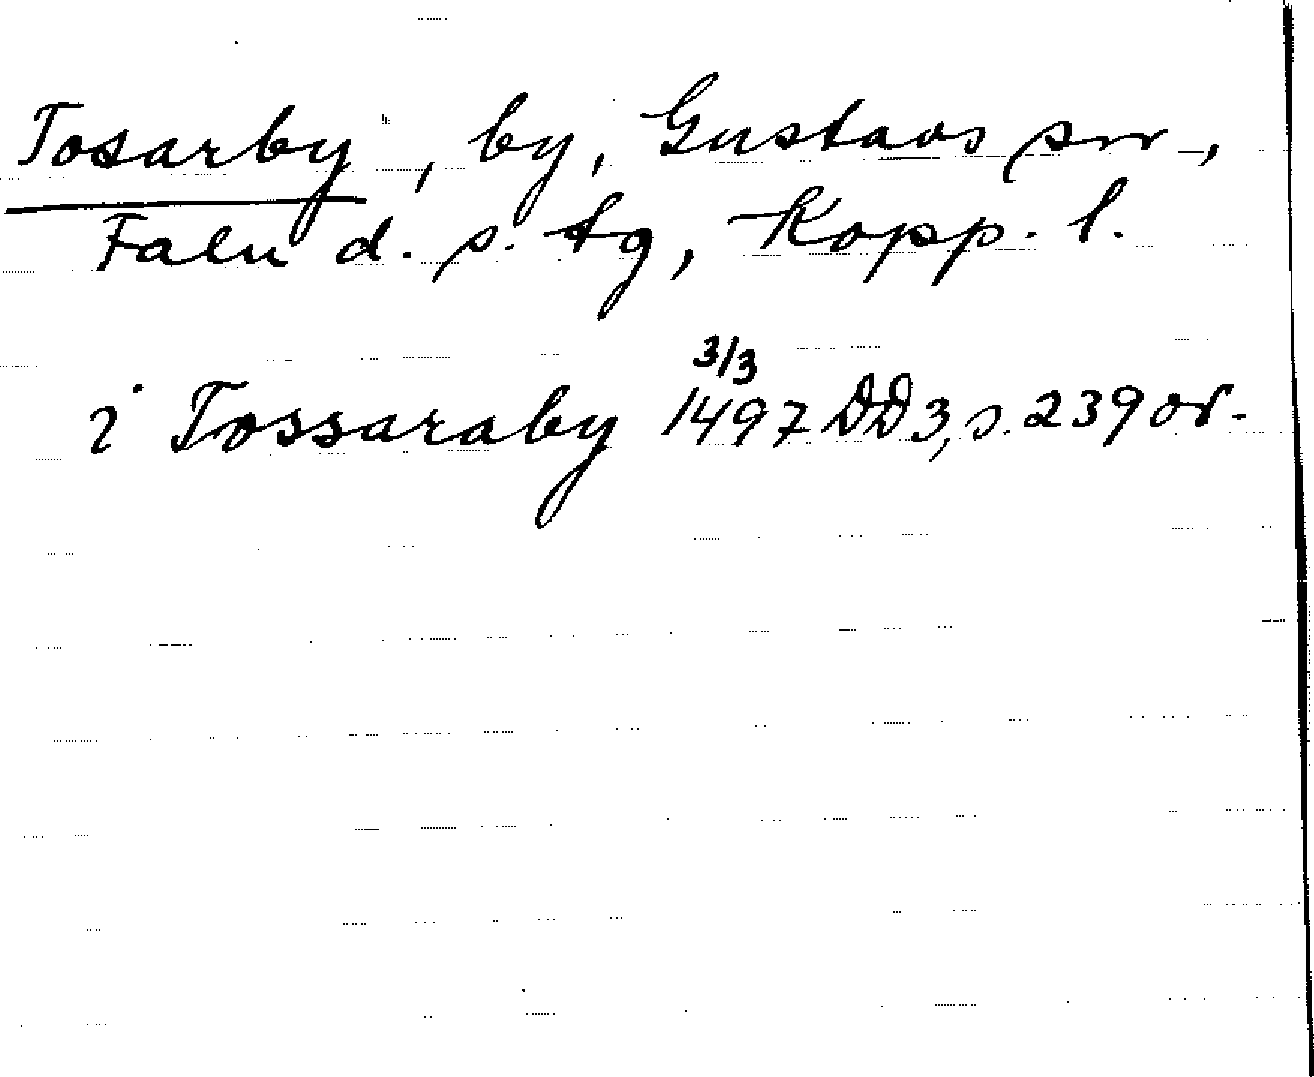 Tosarby, by, Gustavs sn,
Falu d. s. tg, Kopp. l.
i Tossaraby 3/3 1497 DD3, s. 239 or.